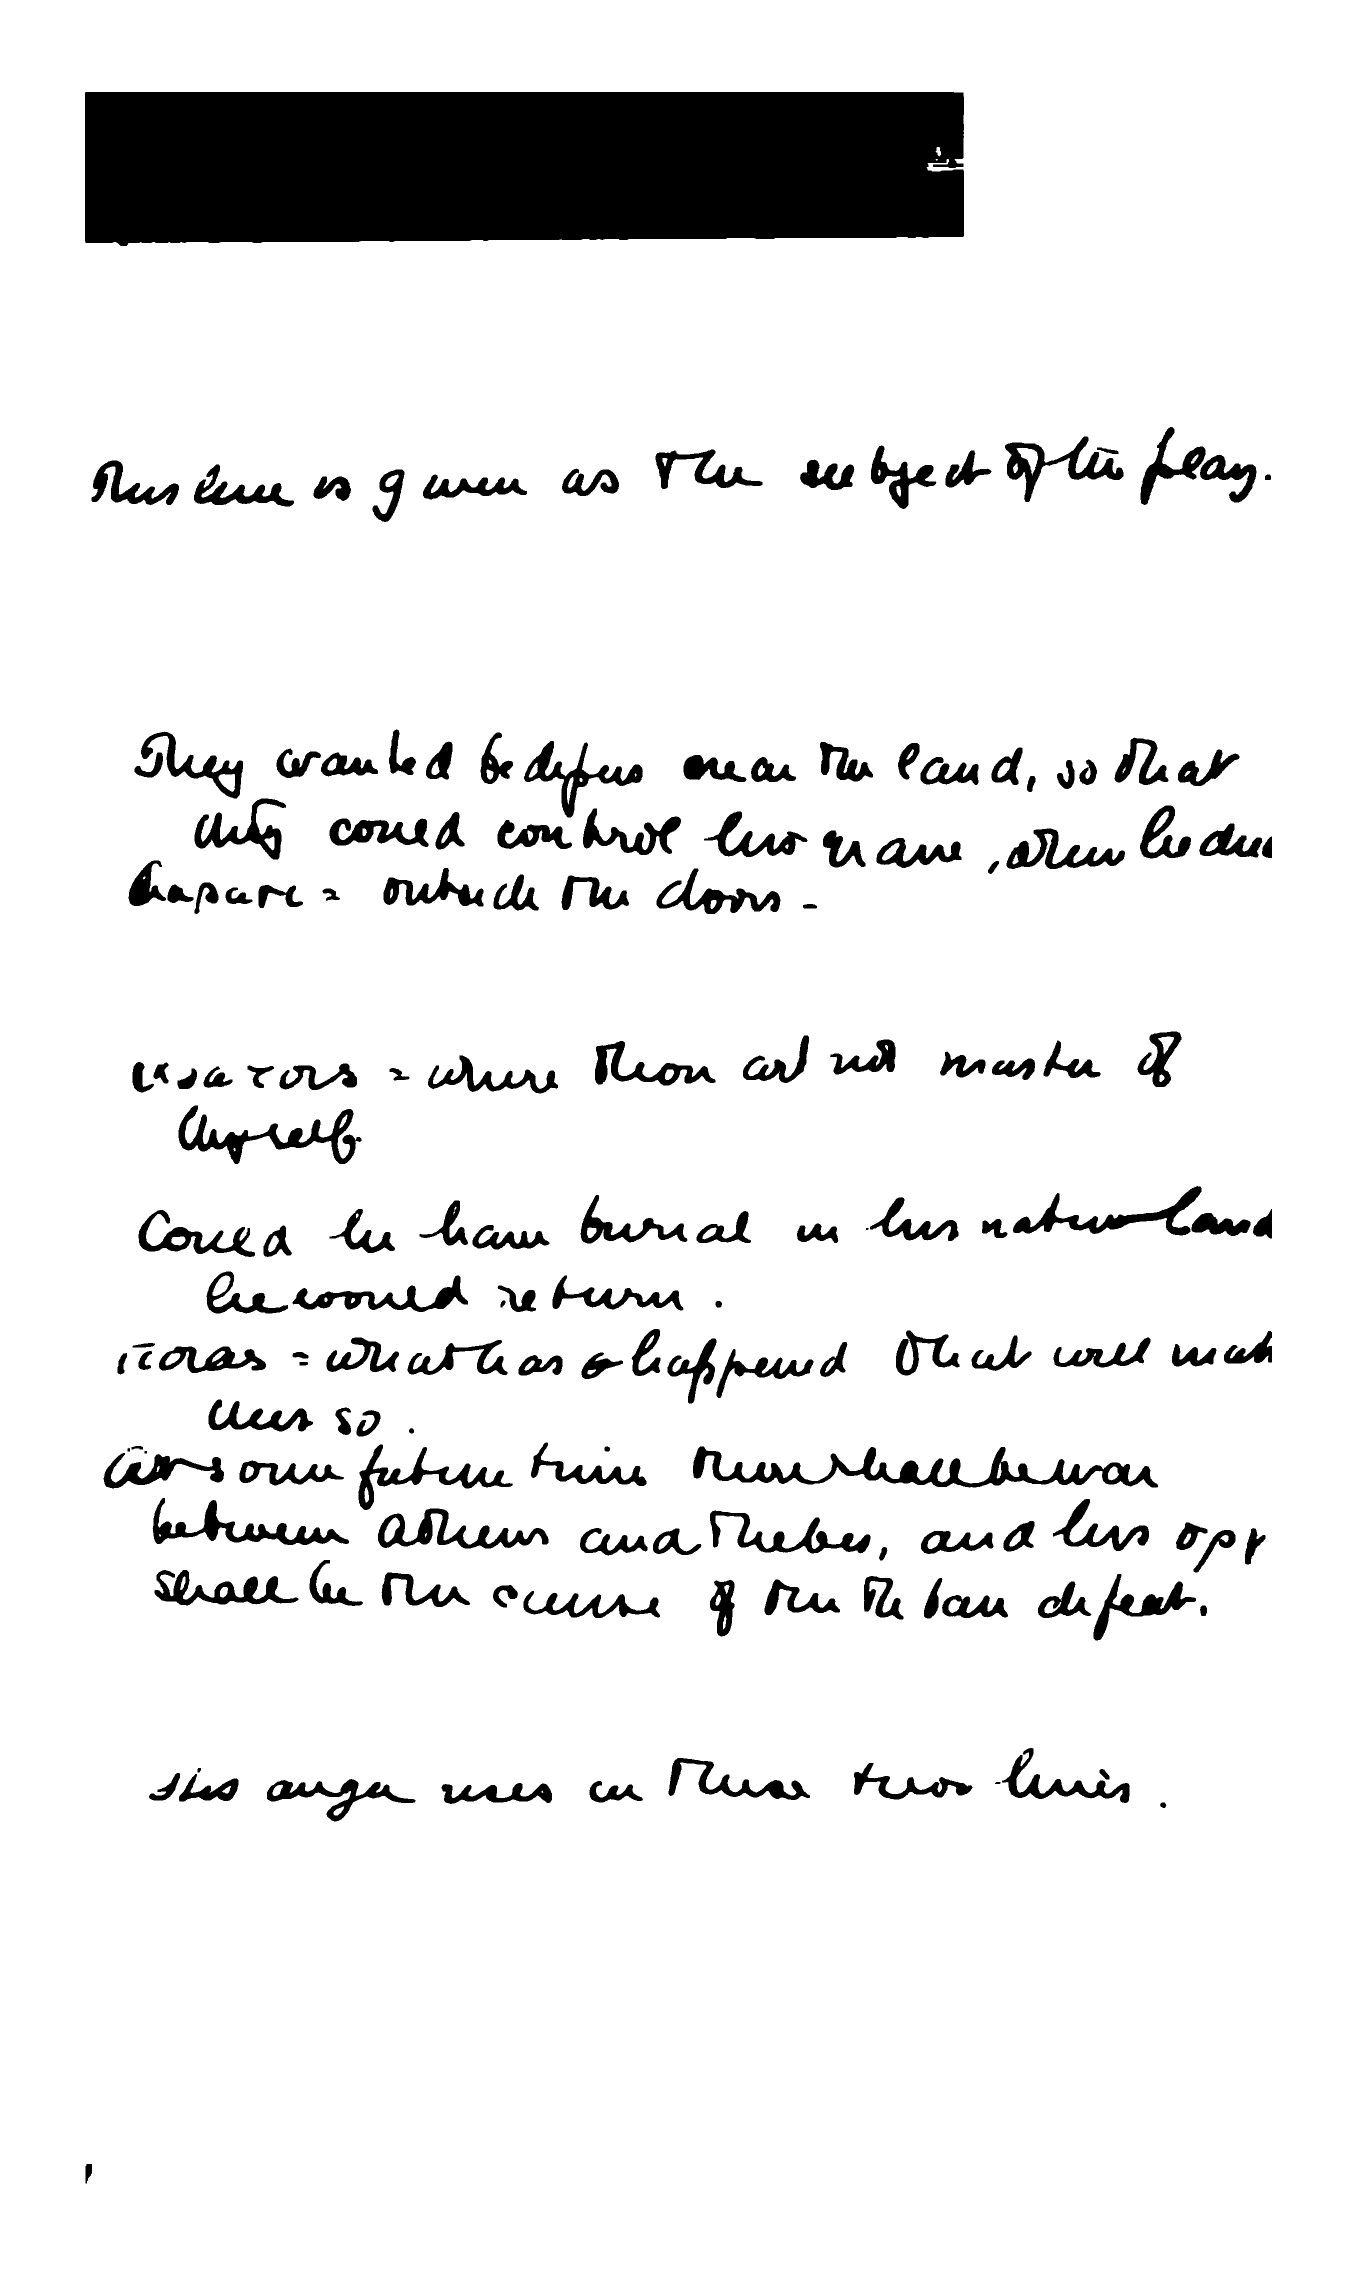 This line is given as the subject of the play.
They wanted Oedipus near the land, so that
they could control his grave, when he died
= outside the doors -
= where thou art not master of
thyself.
Could he have burial in his native land
he would return.
= what has happened that will make
this so.
At some future time there shall be war
between Athens and Thebes, and his
shall be the cause of the Theban defeat.
His anger rises in these two lines.